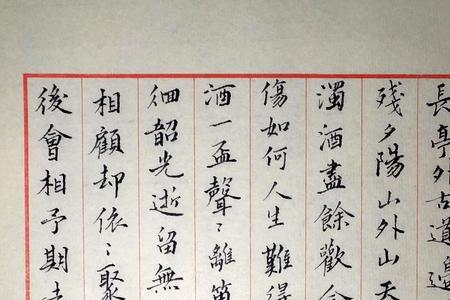 長亭外古道
殘夕陽山外山天
濁酒盡餘歡
傷如何人生難得
酒一盃聲〻離笛
徊韶光逝留無
相顧却依〻聚
後會相予期